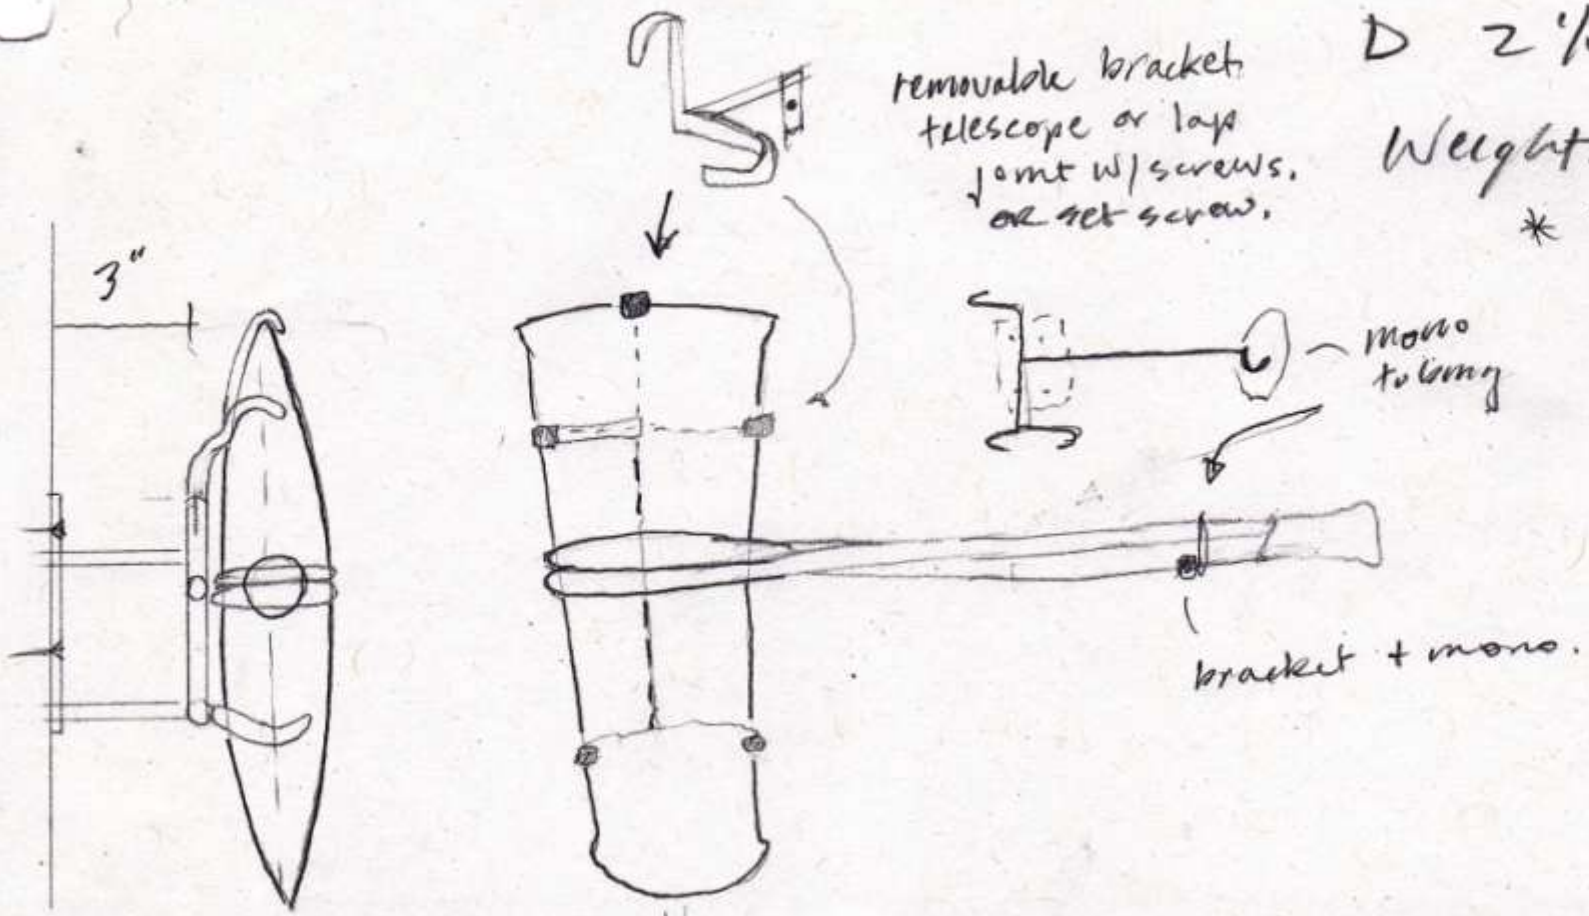 removable bracket
telescope or lap
joint w/ screws.
or set screw.
D 2 1/
Weight
*
3"
mono
tubing
bracket + mono.